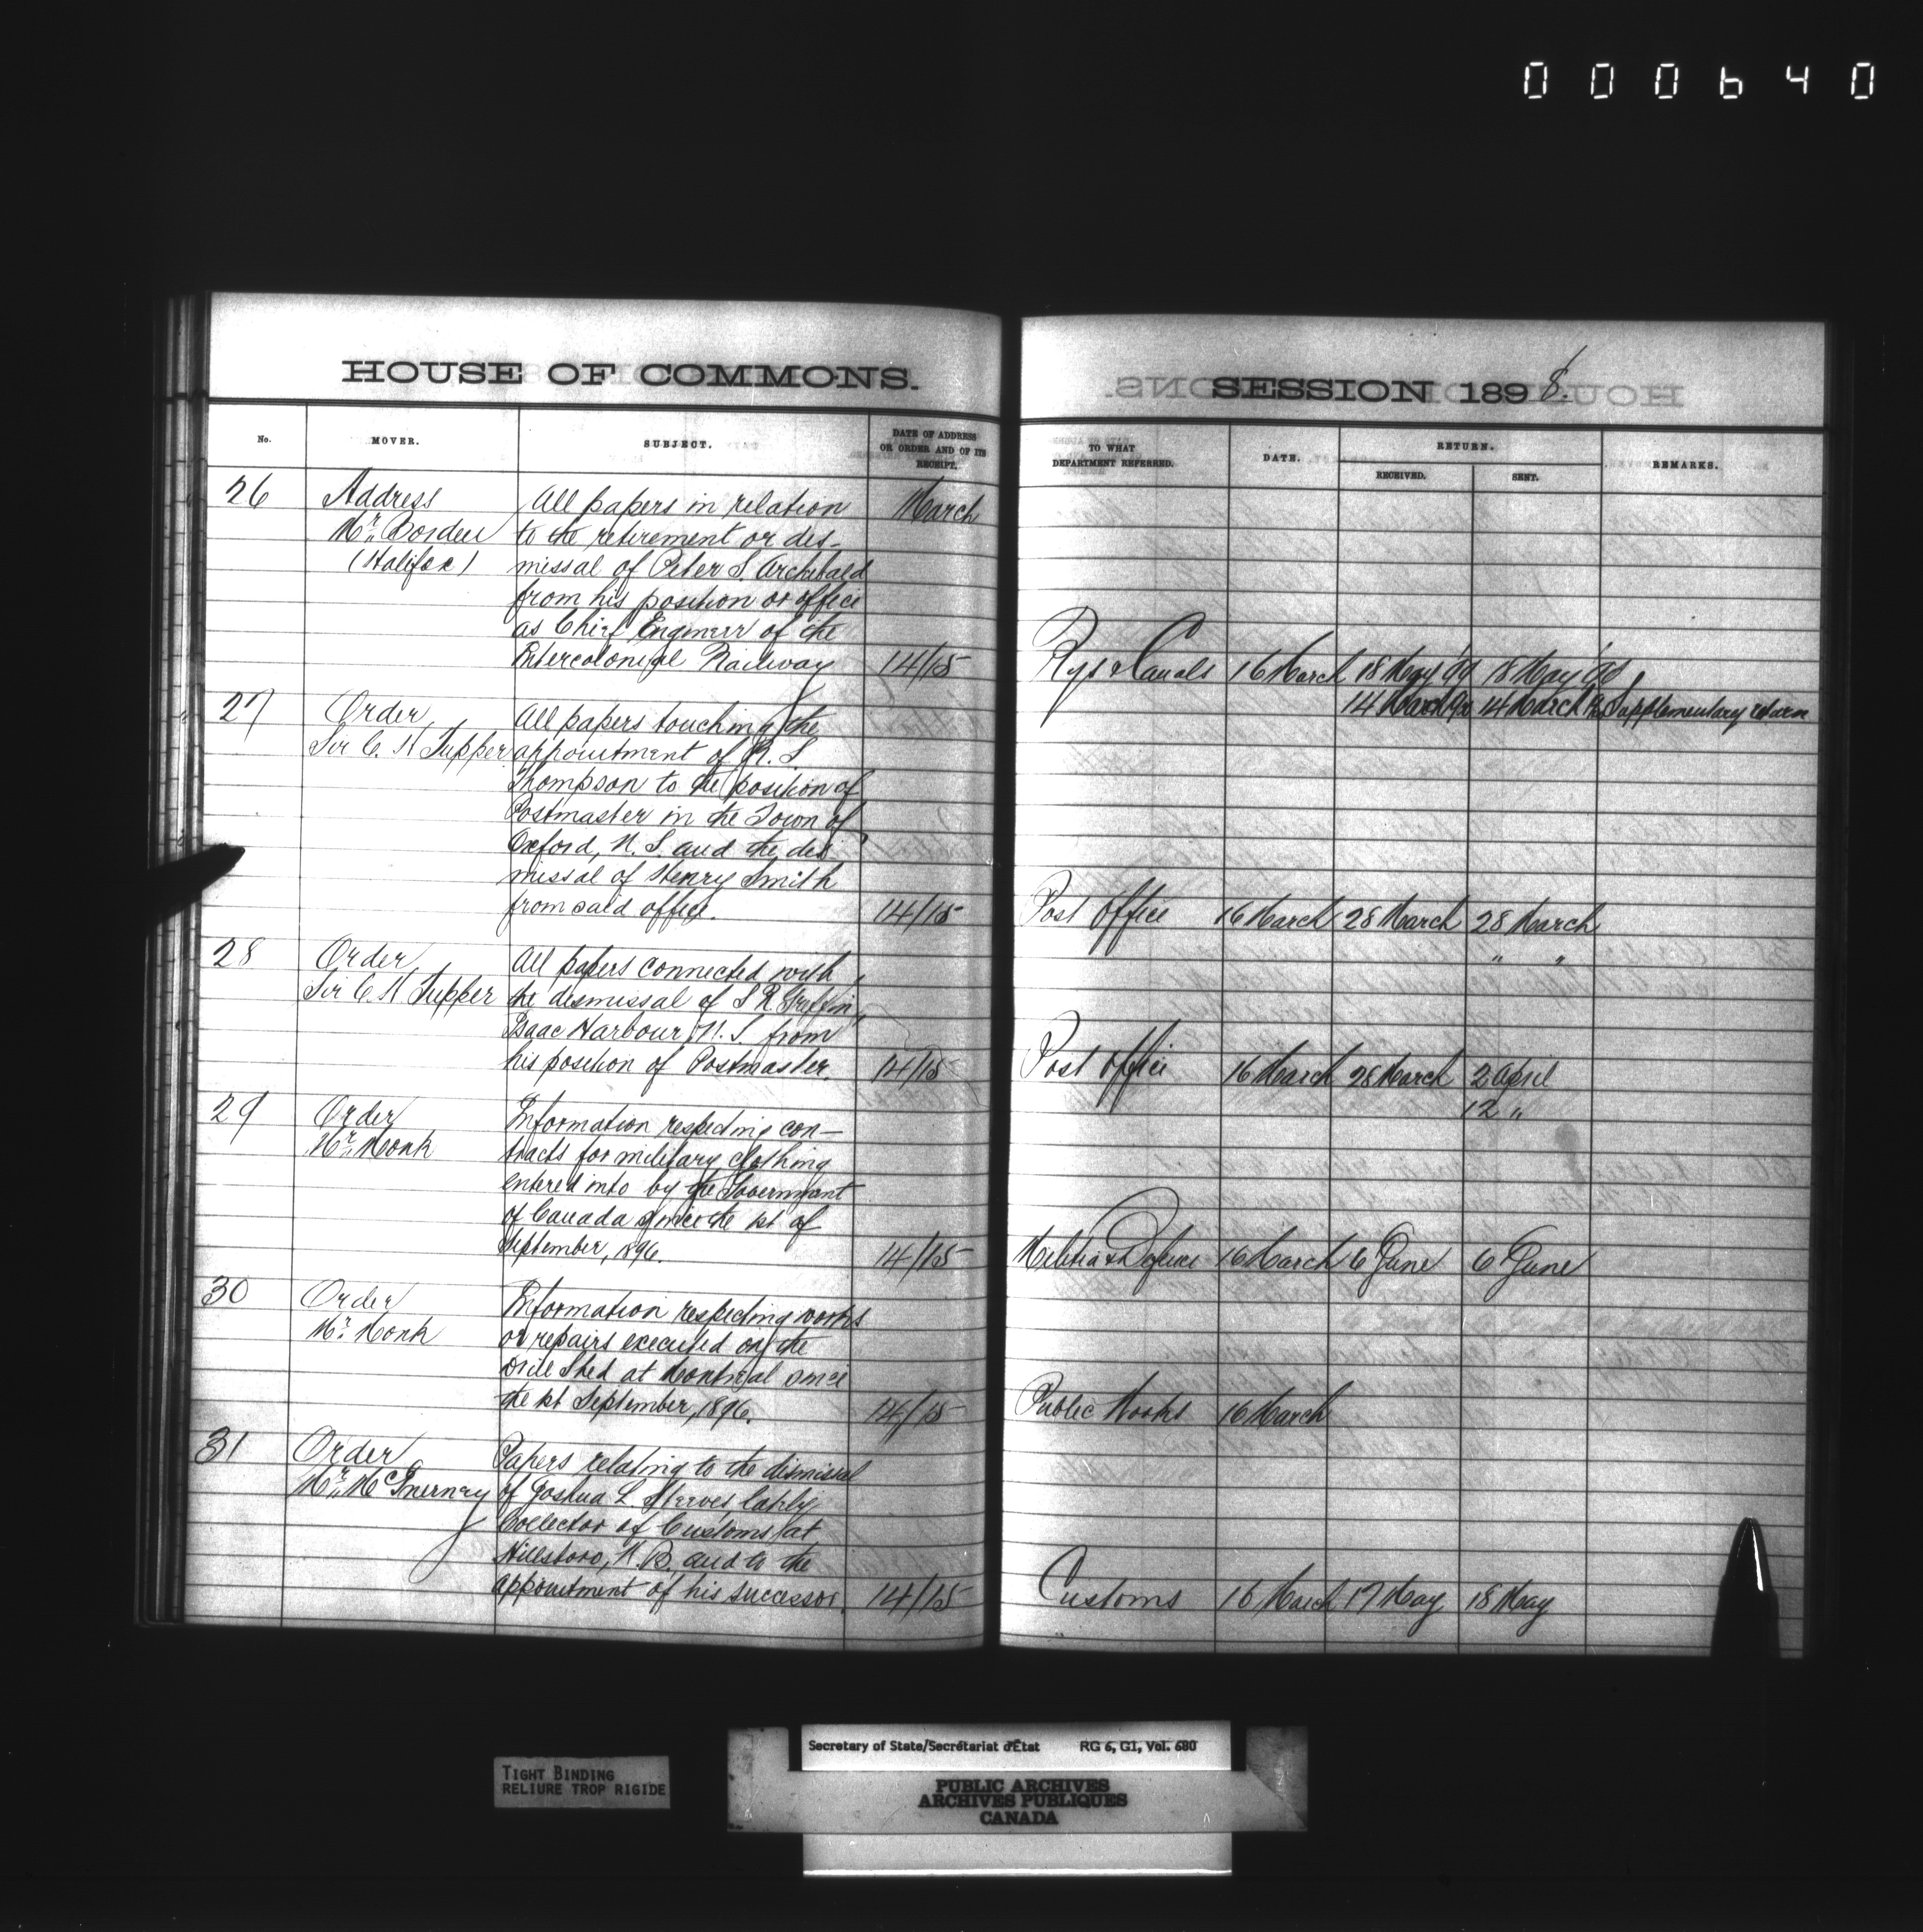 000640
HOUSE OF COMMONS.
No.
MOVER.
SUBJECT.
DATE OF ADDRESS
OR ORDER AND OF ITS
RECEIPT.
26
Address
Mr. Borden
(Halifax)
All papers in relation
to the retirement or dis-
missal of Peter S. Archibald
from his position or office
as Chief Engineer of the
Intercolonial Railway
March
14/15
27
Order
Sir C. H Tupper
All papers touching the
appointment of R. S
Thompson to the position of
Postmaster in the Town of
Oxford, N. S. and the dis
missal of Henry Smith
from said office.
14/15
28
Order
Sir C H Tupper
All papers connected with
the dismissal of S R. Griffin,
Isaac Harbour, N. S. from
his position of Postmaster.
14/15
29
Order
Mr. Monk
Information respecting con-
tracts for military clothing
entered into by the Government
of Canada since the 1st of
September, 1896.
14/15
30
Order
Mr. Monk
Information respecting works
or repairs executed on the
Drill Shed at Montreal since
the 1st September, 1896.
14/15
31
Order
Mr. McInerney
Papers relating to the dismissal
of Joshua L. Steeves, lately
Collector of Customs at
Hillsboro, N. B. and to the
appointment of his successor.
14/15
SESSION 1898.
TO WHAT
DEPARTMENT REFERRED.
DATE.
RETURN.
RECEIVED.
SENT.
REMARKS.
Rys & Canals 16 March 18 May 18 May
14 March 14 March Supplementary return
Post Office 16 March 28 March 28 March
" "
Post Office 16 March 28 March 2 April
12 "
Militia & Defence 16 March 6 June 6 June
Public Works 16 March
Customs 16 March 17 May 18 May
TIGHT BINDING
RELIURE TROP RIGIDE
Secretary of State/Secrétariat d'État RG 6, G1, Vol. 680
PUBLIC ARCHIVES
ARCHIVES PUBLIQUES
CANADA